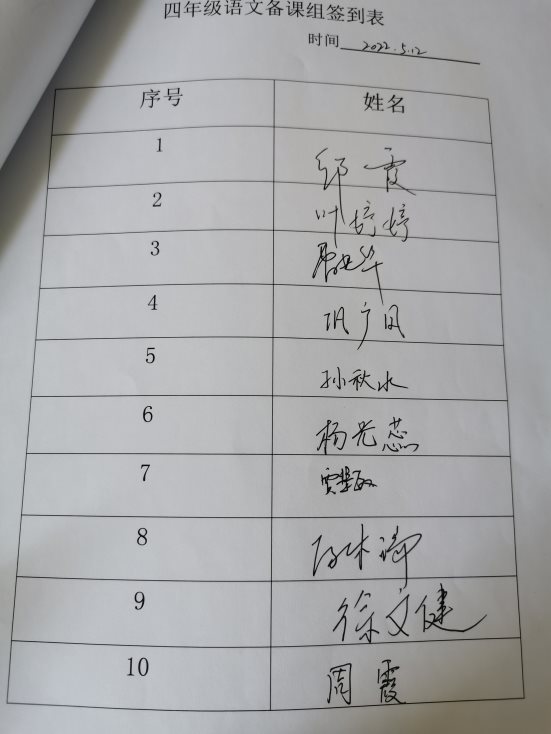 四年级语文备课组签到表
时间 2022.5.12
序号 姓名
1 邹霞
2 叶婷婷
3
4 巩广凤
5 孙秋水
6 杨光蕊
7
8
9 徐文健
10 周霞